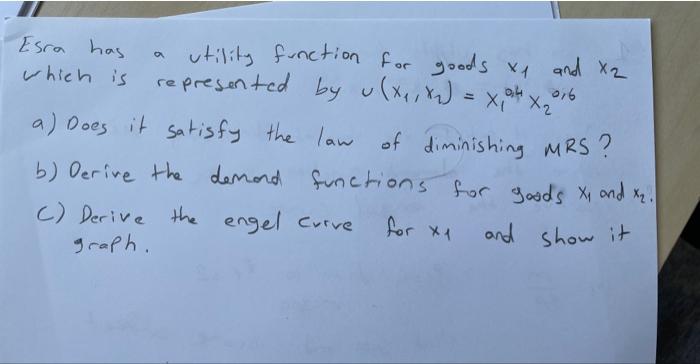 Esra has a utility function for goods x1 and x2
which is represented by u(x₁,x₂) = x₁^0,4 x₂^0,6
a) Does it satisfy the law of diminishing MRS?
b) Derive the demand functions for goods x₁ and x₂.
c) Derive the engel curve for x1 and show it
graph.